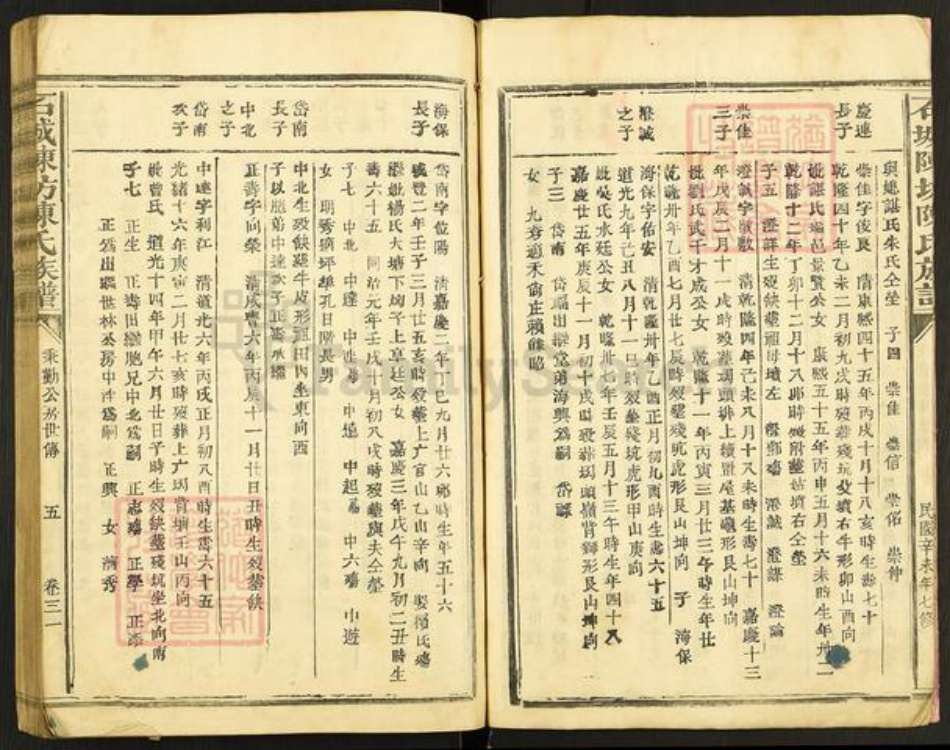 石城陳坊陳氏族譜
民國辛未年七修
與媲諶氏朱氏仝塋 子四 崇佳 崇信 崇佑 崇仲
慶連
長子
崇佳字俊良 清康熙四十五年丙戌十月十八亥時生壽七十
乾隆四十年乙未二月初九戌時歿葬殘坑父墳右牛形卯山酉向
妣諶氏瑞邑景賢公女 康熙五十五年丙申五月十六未時生年卅二
乾隆十二年丁卯十二月十八卯時歿附葬姑墳右仝塋
子五 澄祥生歿缺葬祖母墳左 澄誠 澄謀 澄論
崇佳
三子
澄誠字 清乾隆四年己未八月十八未時生壽七十 嘉慶十三
年戊辰二月十 戌時歿葬 頭排上 屋基 形艮山坤向
妣劉氏武干才成公女 乾隆十一年丙寅三月廿三午時生年廿
乾隆卅年乙酉七月廿七辰時歿葬殘坑虎形艮山坤向 子 海保
澄誠
之子
海保字佑安 清乾隆卅年乙酉正月初九酉時生壽六十五
道光九年己丑八月十一日時歿葬殘坑虎形甲山庚向
妣吳氏水廷公女 乾隆卅七年壬辰五月十三午時生年四十八
嘉慶廿五年庚辰十一月初十戌時歿葬 頭嶺背獅形艮山坤向
子三 岱南 岱 出繼堂弟海興為嗣 岱
女 九秀適禾俞庄賴
海保
長子
岱南字位陽 清嘉慶二年丁巳九月廿六卯時生年五十六
咸豐二年壬子三月廿五亥時歿葬上广官山乙山辛向 娶 氏
繼妣楊氏大塘下 子上享廷公女 嘉慶三年戊午九月初二丑時生
壽六十五 同治元年壬戌十月初八戌時歿葬與夫仝塋
子七 中北 中達 中 中 中起 中六 中遊
女 明秀適坪 孔日 長男
岱南
長子
中北生歿缺葬牛皮形祖田內坐東向西
子以胞弟中達次子正壽承繼
中北
之子
正壽字向榮 清咸豐六年丙辰十一月廿日丑時生歿葬缺
岱南
次子
中達字利江 清道光六年丙戌正月初八酉時生壽六十五
光緒十六年庚寅二月廿七亥時歿葬上广 背 壬山丙向
妣曾氏 道光十四年甲午六月廿日子時生歿缺葬殘坑坐北向南
子七 正生 正壽出繼胞兄中北為嗣 正志 正學 正
正 出 世林公房中 為嗣 正興 女 秀
石城陳坊陳氏族譜
秉勤公 世傳
五
卷三一
FamilySearch